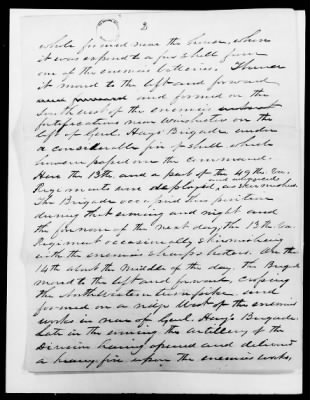 2
while formed near the house, where
it was exposed to a fire of shell from
one of the enemies batteries. Thence
it moved to the left and forward
and formed on the
South west of the enemies
fortifications near Winchester on the
left of Genl. Hays Brigade under
a considerable fire of shell, which
however passed over the command.
Here the 13th, and a part of the 49th Va.
Regiments were deployed, as skirmishers.
The Brigade occupied this position
during that evening and night and
the forenoon of the next day, the 13th Va.
Regiment occasionally skirmishing
with the enemies sharpshooters. On the
14th about the middle of the day, the Brigade
moved to the left and forward, crossing
the Northwestern turnpike and
formed on a ridge West of the enemies
works in rear of Genl. Hays's Brigade.
Late in the evening the artillery of the
Division having opened and delivered
a heavy fire upon the enemies works,